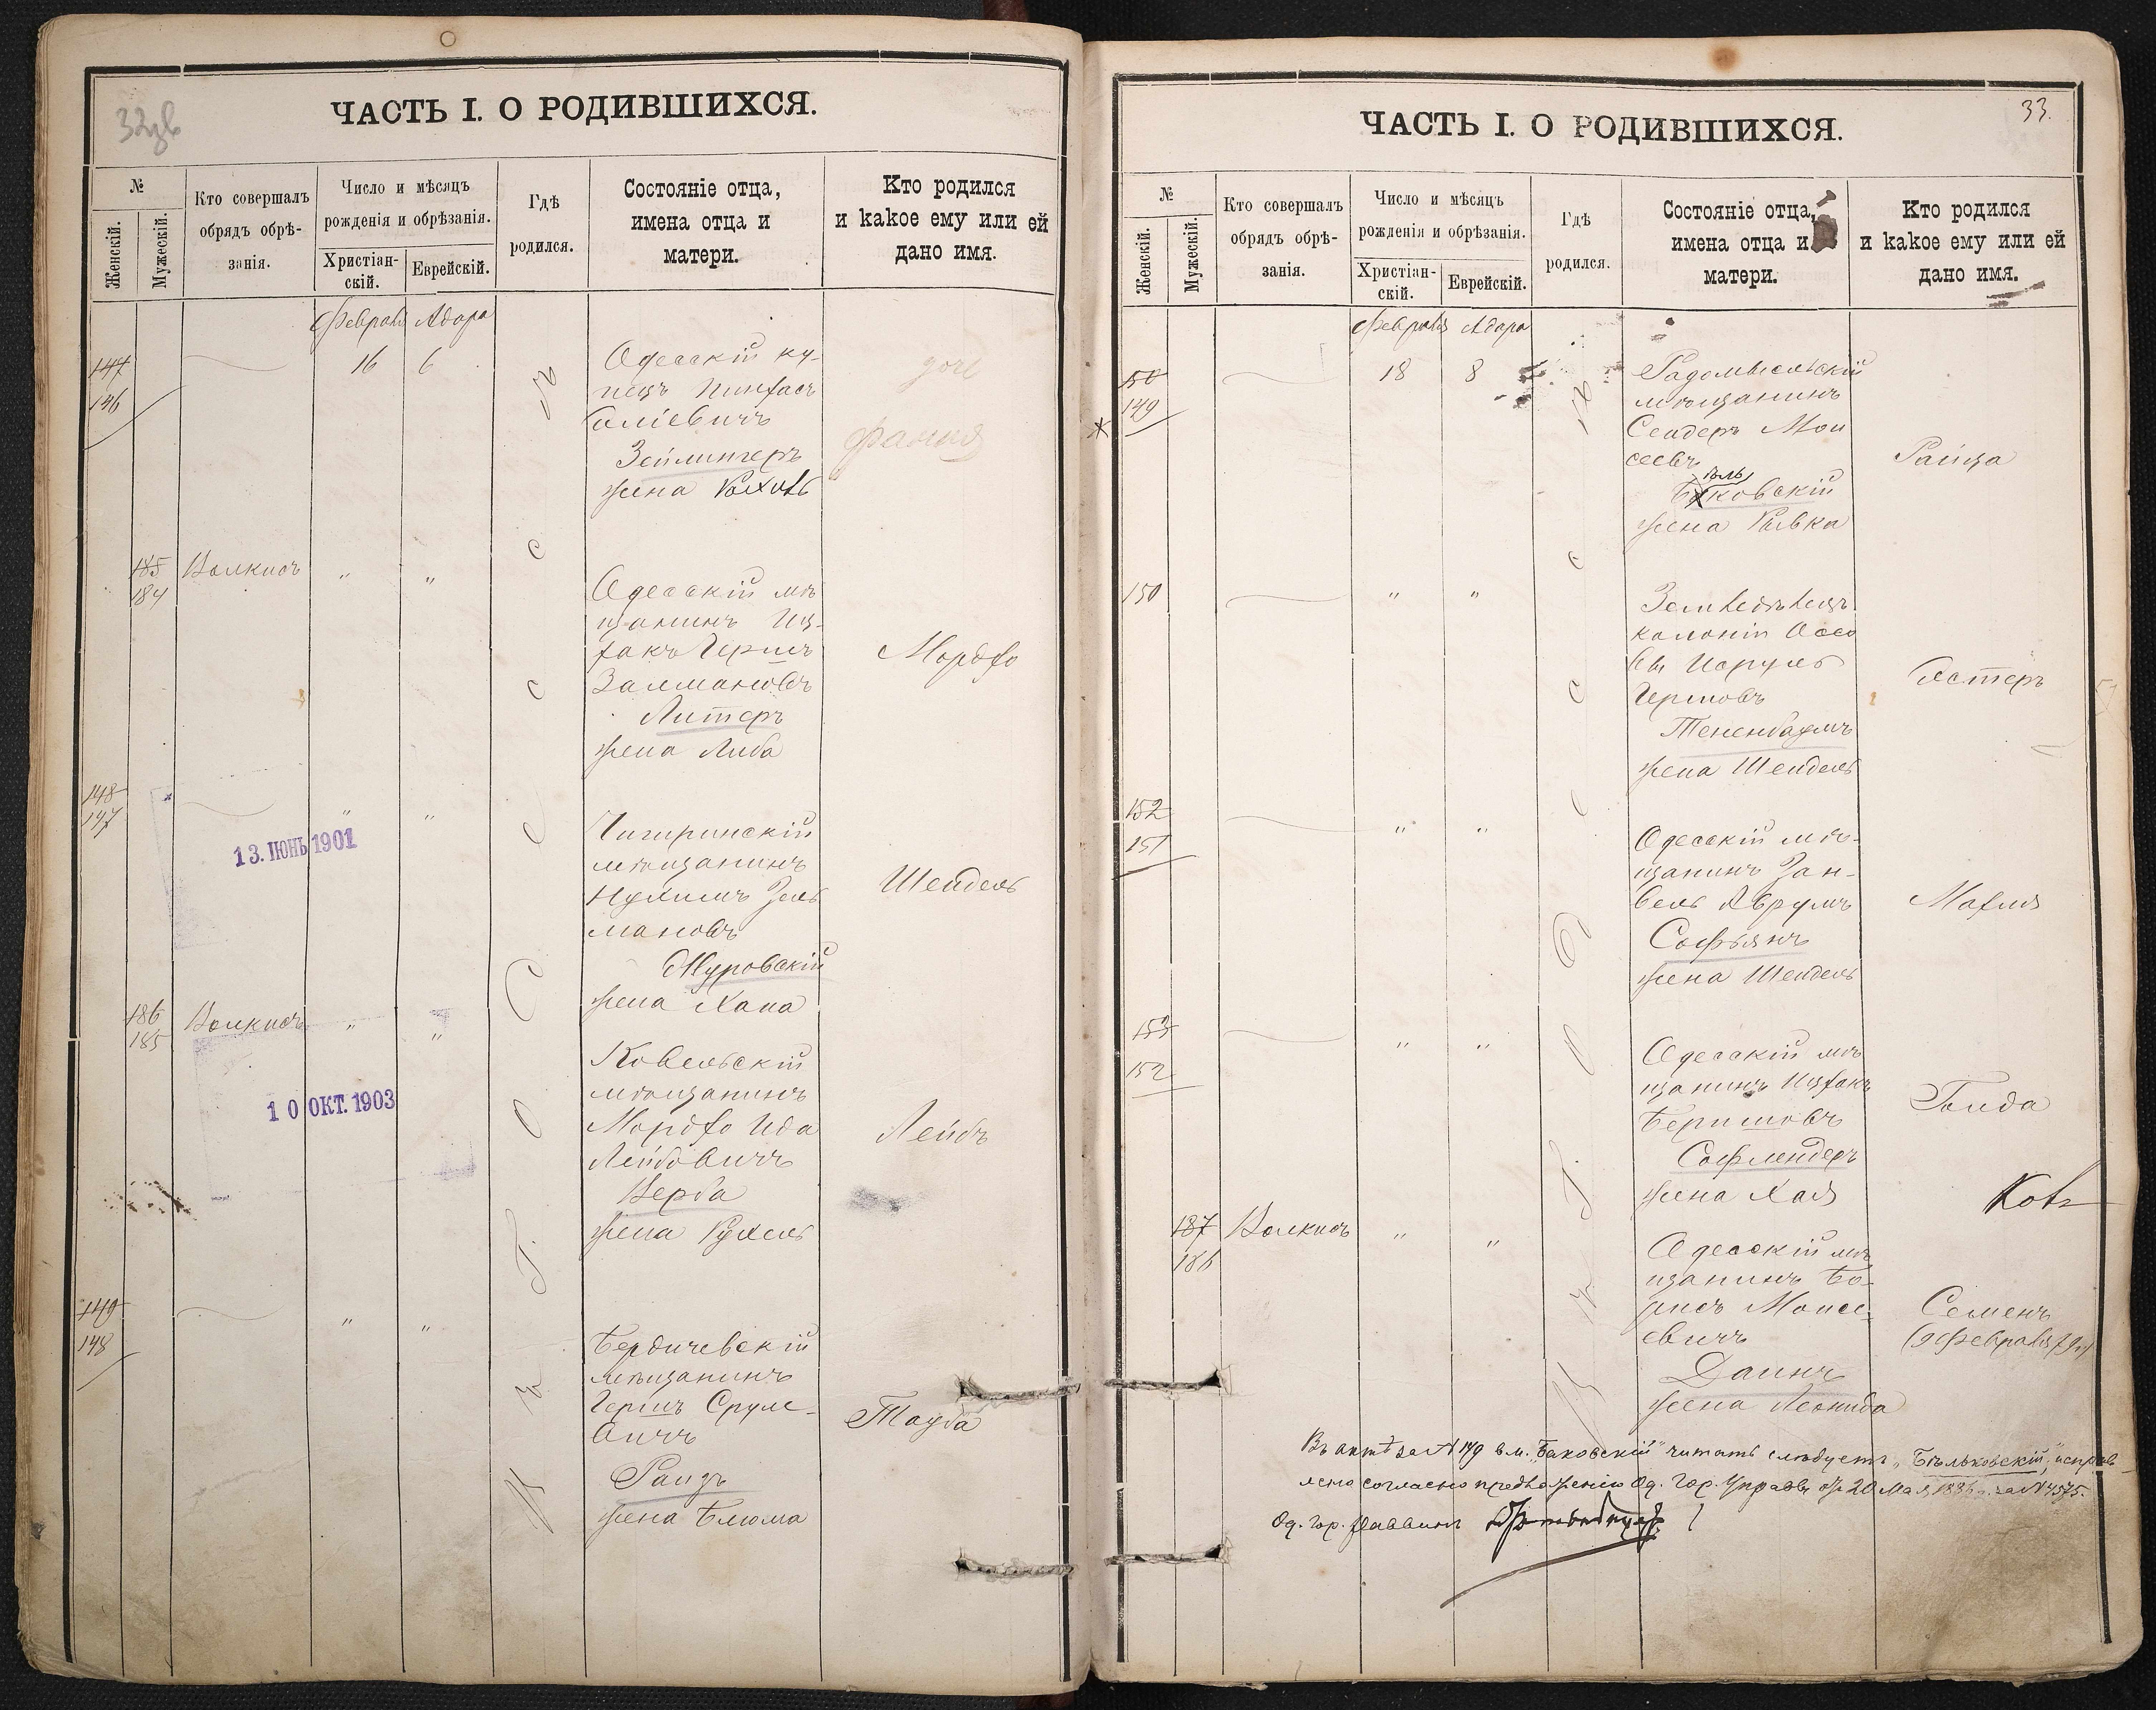 32
ЧАСТЬ I. О РОДИВШИХСЯ.
№
Женскій.
Мужескій.
Кто совершалъ
обрядъ обрѣ-
занія.
Число и мѣсяцъ
рожденія и обрѣзанія.
Христіан-
скій.
Еврейскій.
Гдѣ
родился.
Состояніе отца,
имена отца и
матери.
Кто родился
и какое ему или ей
дано имя.
Февраля Адара
147
146
16 6
Одесскій ку-
пецъ Пинхасъ
Зейлингеръ
жена Рахиль
Фания
185
184
Волкисъ " "
Одесскій мѣ
щанинъ Иц-
хакъ Гершъ
Залмановъ
Литеръ
жена Либа
Мордхо
148
147
" "
13. ІЮНЬ 1901
Чигиринскій
мѣщанинъ
Нухимъ Зель
мановъ
Журовскій
жена Хана
Шейдель
186
185
Волкисъ " "
10 ОКТ. 1903
Ковельскій
мѣщанинъ
Мордхо Ида
Лейбовичъ
Верба
жена Рухель
Лейбъ
149
148
" "
Бердичевскій
мѣщанинъ
Гершъ Сруле-
вичъ
Рандъ
жена Блюма
Тауба
въ г. Одессѣ
33.
ЧАСТЬ I. О РОДИВШИХСЯ.
№
Женскій.
Мужескій.
Кто совершалъ
обрядъ обрѣ-
занія.
Число и мѣсяцъ
рожденія и обрѣзанія.
Христіан-
скій.
Еврейскій.
Гдѣ
родился.
Состояніе отца,
имена отца и
матери.
Кто родился
и какое ему или ей
дано имя.
Февраля Адара
150
149
18 8
Радомысльскій
мѣщанинъ
Сендеръ Мои
сеевъ
Бѣльковскій
жена Ривка
Раиза
150
" "
Земледѣлецъ
колоніи
Исруль
Гершовъ
Тененбаумъ
жена Шейдель
Эстеръ
152
151
" "
Одесскій мѣ-
щанинъ Зан-
вель Аврумъ
Софьянъ
жена Шейдель
Махля
153
152
" "
Одесскій мѣ
щанинъ Ицхакъ
Беришовъ
Софлендеръ
жена Хая
Голда
187
186
Волкисъ " "
Одесскій мѣ
щанинъ Бо-
рисъ Моисе-
евичъ
Даинъ
жена Леонида
Семенъ
(9 Февраля
въ г. Одессѣ
Въ актѣ за № 149 вм. „Баковскій" читать слѣдуетъ „Бѣльковскій", исправ-
лено согласно предложенію Од. Гор. Управы отъ 20 Мая 1886 г. за № 4575.
Од. Гор. Раввинъ